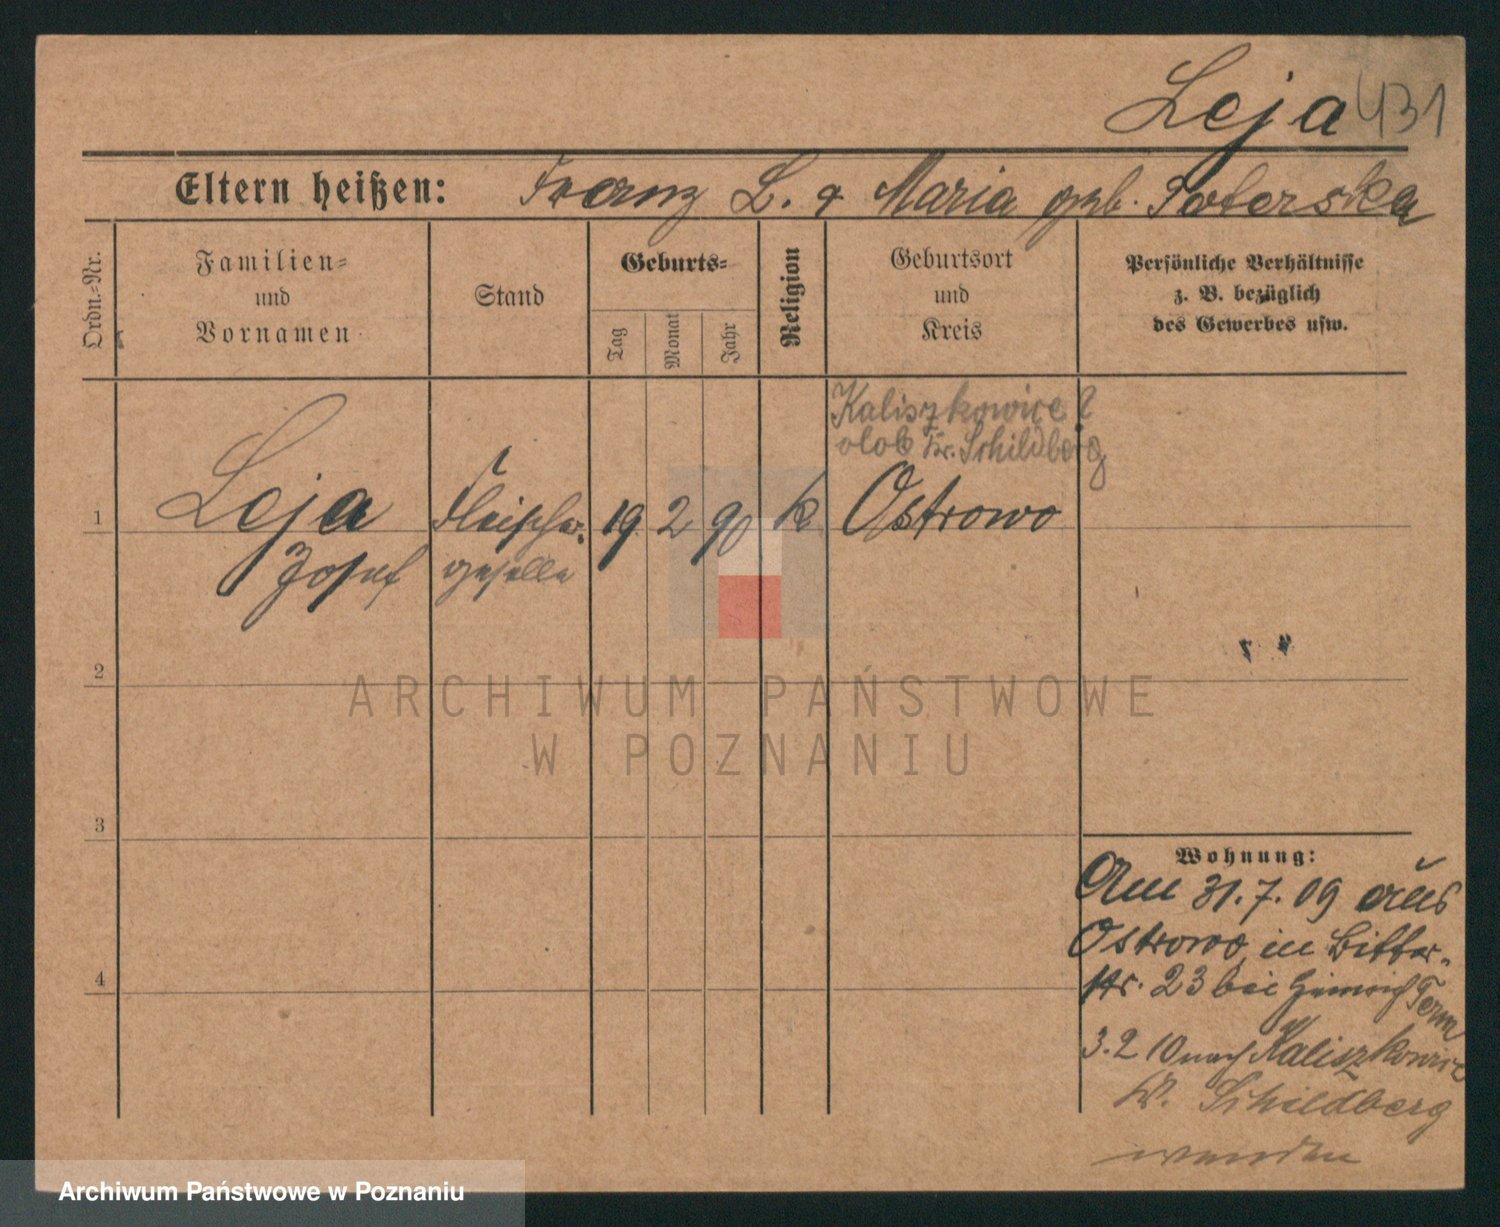 Leja 431
Eltern heißen: Franz L. & Maria geb. Saterska
Ordn.-Nr.
Familien-
und
Vornamen
Stand
Geburts-
Tag
Monat
Jahr
Religion
Geburtsort
und
Kreis
Persönliche Verhältnisse
z. B. bezüglich
des Gewerbes usw.
Kaliszkowice?
olob Kr. Schildberg
1 Leja Fleischer- 19 2 90 k Ostrowo
Josef geselle
2
3
4
Wohnung:
Am 31.7.09 aus
Ostrowo in Bitter-
str. 23 bei Heinrich
3.2 10 nach Kaliszkowice
Kr. Schildberg
ARCHIWUM PAŃSTWOWE
W POZNANIU
Archiwum Państwowe w Poznaniu